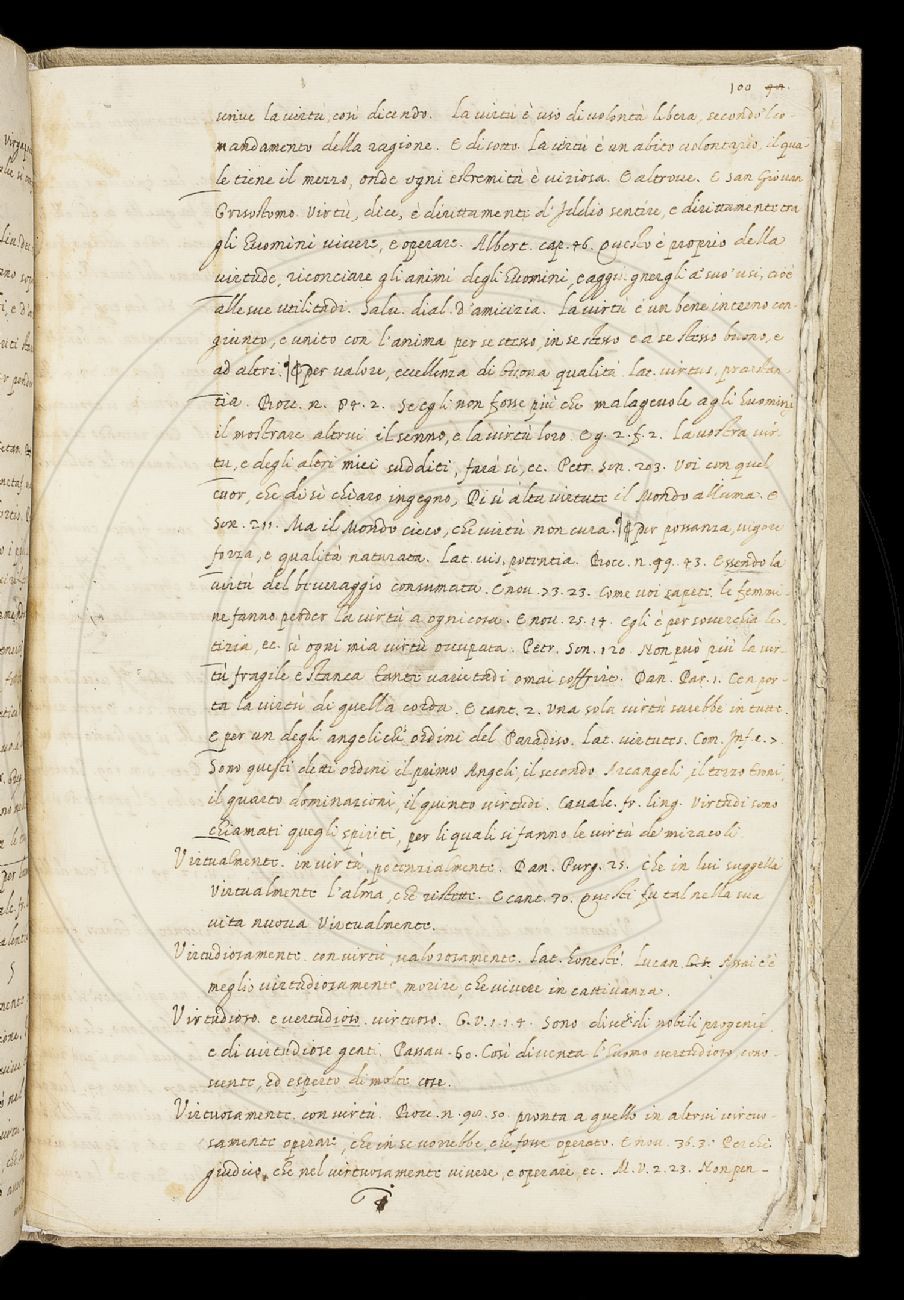 100
scrive la virtù, così dicendo. La virtù è uso di volontà libera, secondo 'l co-
mandamento della ragione. E di sotto. La virtù è un abito volontario, il qua-
le tiene il mezzo, onde ogni estremità è viziosa. E altrove. E San Giovan
Grisostomo. Virtù, dice, è dirittamente d' Iddio sentire, e dirittamente tra
gli huomini vivere, e operare. Albert. cap. 46. Questo è proprio della
virtude, riconciare gli animi degli huomini, e aggiugnergli a' suo' usi, cioè
alle sue utilitadi. Salv. dial. d'amicizia. La virtù è un bene interno con-
giunto, e unito con l'anima per se stesso, in se stesso e a se stesso buono, e
ad altri. ¶ per valore, eccellenza di buona qualità. Lat. virtus, praestan-
tia. Bocc. n. 84. 2. Se egli non fosse più che malagevole agli huomini
il mostrare altrui il senno, e la virtù loro. E g. 2. f. 2. La vostra vir-
tù, e degli altri miei sudditi, farà sì, ec. Petr. Son. 203. Voi con quel
cuor, che di sì chiaro ingegno, Di sì alta virtute il Mondo alluma. E
Son. 211. Ma il Mondo cieco, che virtù non cura. ¶ per possanza, vigore
forza, e qualità naturata. Lat. vis, potentia. Bocc. n. 99. 43. Essendo la
virtù del beveraggio consumata. E nov. 73. 23. Come voi sapete, le femmi-
ne fanno perder la virtù a ogni cosa. E nov. 25. 14. Egli è per soverchia le-
tizia, ec. sì ogni mia virtù occupata. Petr. Son. 120. Non può più la vir-
tù fragile e stanca tante varietadi omai soffrire. Dan. Par. 1. Cen por-
ta la virtù di quella corda. E cant. 2. Una sola virtù sarebbe in tutti.
E per un degli angelichi ordini del Paradiso. Lat. virtutes. Com. Inf. c. 7.
Sono questi cotai ordini il primo Angeli, il secondo Arcangeli, il terzo troni,
il quarto dominazioni, il quinto virtudi. Cavalc. fr. ling. Virtudi sono
chiamati quegli spiriti, per li quali si fanno le virtù de' miracoli.
Virtualmente. in virtù, potenzialmente. Dan. Purg. 25. Che in lui suggella
Virtualmente l'alma, che ristette. E cant. 30. Questi fu tal nella sua
vita nuova Virtualmente.
Virtudiosamente. con virtù, valorosamente. Lat. honestè. Lucan. Assai c'è
meglio virtudiosamente morire, che vivere in cattivanza.
Virtudioso. e vertudioso. virtuoso. G. V. 1. 1. 4. Sono disceși di nobili progenie
e di virtudiose genti. Passav. 50. Così diventa l'huomo vertudioso, cono-
scente, ed esperto di molte cose.
Virtuosamente. con virtù. Bocc. n. 98. 50. pronta a quello in altrui virtuo-
samente operare, che in se vorrebbe, che fosse operato. E nov. 36. 3. Perchè
giudico, che nel virtuosamente vivere, e operare, ec. M. V. 2. 23. Non pen-